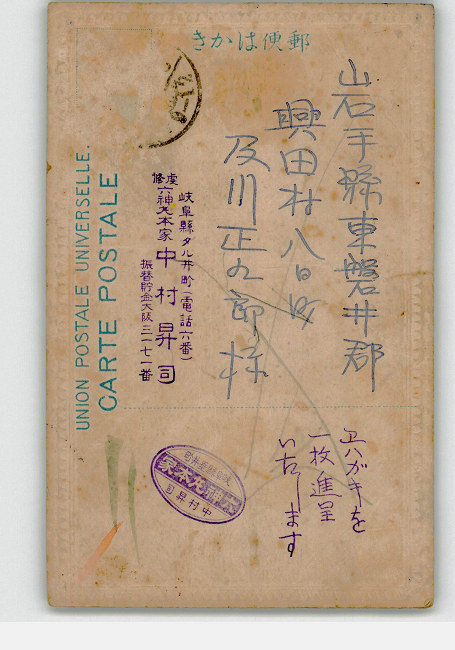 郵便はかき
UNION POSTALE UNIVERSELLE.
CARTE POSTALE
山岩手縣東磐井郡
興田村八日町
及川正九郎様
岐阜縣タル井町(電話六番)
六神丸本家 中村昇司
振替貯金大阪三一七一番
ヱハガキを
一枚進呈
いたします
六神丸本家
中村昇司